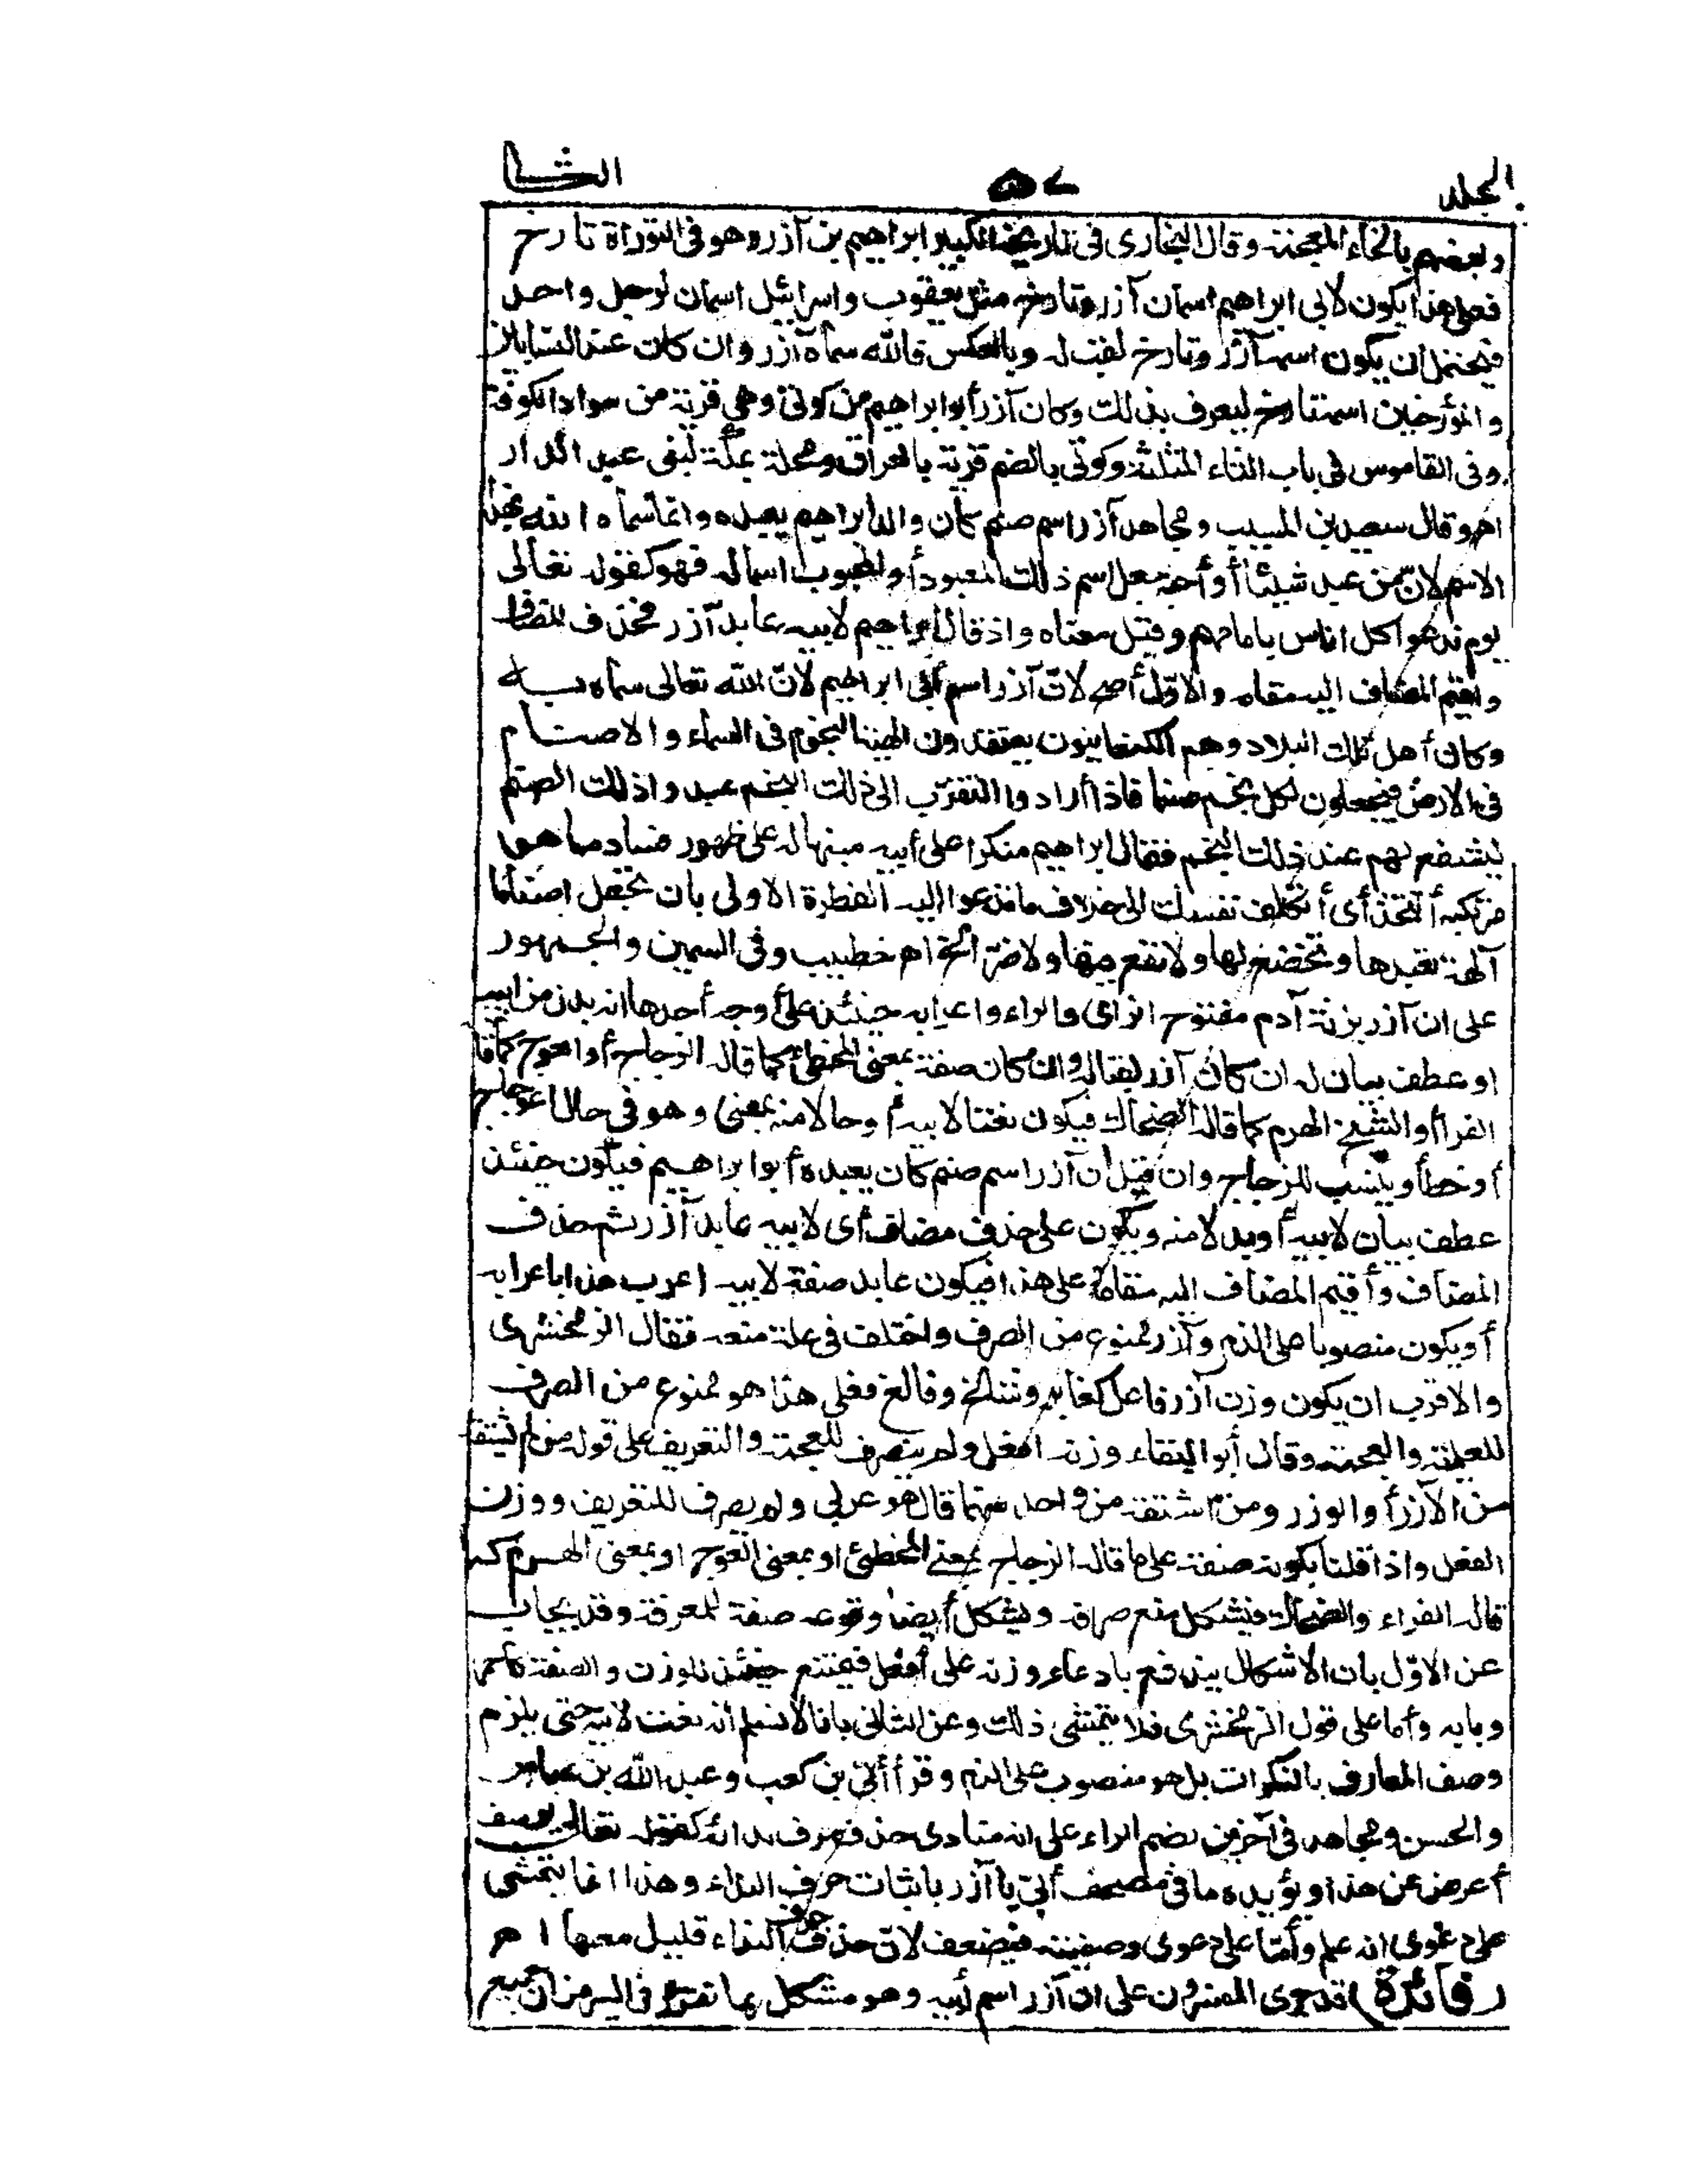 المجلد ٥٧ الثا
وبعضهم بالخاء المعجمة وقال البخارى فى تاريخه الكبير ابراهيم بن آزر وهو فى التوراة تارخ
فعلى هذا يكون لابى ابراهيم اسمان آزر وتارخ مثل يعقوب واسرائيل اسمان لرجل واحد
فيحتمل ان يكون اسمه آزر وتارخ لقب له وبالعكس فالله سماه آزر وان كان عند النسابين
والمؤرخين اسمه تارخ ليعرف بذلك وكان آزر أبو ابراهيم من كوثى وهى قرية من سواد الكوفة
وفى القاموس فى باب الثاء المثلثة وكوثى بالضم قرية بالعراق ومحلة بمكة لبنى عبد الدار
اهـ وقال سعيد بن المسيب ومجاهد آزر اسم صنم كان والد ابراهيم يعبده وانما سماه الله بهذا
الاسم لان من عبد شيئا أو أحبه جعل اسم ذلك المعبود أو المحبوب اسما له فهو كقوله تعالى
يوم ندعوا كل اناس بامامهم وقيل معناه واذ قال ابراهيم لابيه عابد آزر فحذف المضاف
واقيم المضاف اليه مقامه والاوّل أصح لانّ آزر اسم أبى ابراهيم لانّ الله تعالى سماه به
وكان أهل تلك البلاد وهم الكنعانيون يعتقدون الهية النجوم فى السماء والاصنام
فى الارض فيجعلون لكل نجم صنما فاذا أرادوا التقرّب الى ذلك النجم عبدوا ذلك الصنم
ليشفع لهم عند ذلك النجم فقال ابراهيم منكرا على أبيه منبها له على ظهور فساد ما هو
مرتكبه أتتخذ أى أتكلف نفسك الى خلاف ما تدعو اليه الفطرة الاولى بان تجعل اصناما
آلهة تعبدها وتخضع لها ولا نفع فيها ولا ضرّ الخ اهـ خطيب وفى السمين والجمهور
على ان آزر بزنة آدم مفتوح الزاى والراء واعرابه حينئذ على أوجه أحدها انه بدل من ابيه
او عطف بيان له ان كان آزر لقبا له وان كان صفة بمعنى المخطئ كما قاله الزجاج أو المعوج كما قاله
الفرا أو الشيخ الهرم كما قاله الضحاك فيكون نعتا لابيه أو حالا منه بمعنى وهو فى حال اعوجاج
أو خطأ وينسب للزجاج وان قيل ان آزر اسم صنم كان يعبده أبو ابراهيم فيكون حينئذ
عطف بيان لابيه أو بدلا منه ويكون على حذف مضاف أى لابيه عابد آزر ثم حذف
المضاف وأقيم المضاف اليه مقامه على هذا فيكون عابد صفة لابيه اعرب هذا باعرابه
أو يكون منصوبا على الذم وآزر ممنوع من الصرف واختلف فى علة منعه فقال الزمخشرى
والاقرب ان يكون وزن آزر فاعل كعابر وشالخ وفالغ فعلى هذا هو ممنوع من الصرف
للعلمية والعجمة وقال أبو البقاء وزنه افعل ولم ينصرف للعجمة والتعريف على قول من لم يشتقه
من الآزر أو الوزر ومن اشتقه من واحد منهما قال هو عربى ولم يصرف للتعريف ووزن
الفعل واذا قلنا بكونه صفة على ما قاله الزجاج بمعنى المخطئ او بمعنى المعوج او بمعنى الهرم كما
قاله الفراء والضحاك فيشكل منع صرفه ويشكل أيضا وقوعه صفة للمعرفة وقد يجاب
عن الاوّل بان الاشكال يندفع بادعاء وزنه على أفعل فيمتنع حينئذ للوزن والصفة كأحمر
وبابه وأما على قول الزمخشرى فلا يتمشى ذلك وعن الثانى بانا لا نسلم انه نعت لابيه حتى يلزم
وصف المعارف بالنكرات بل هو منصوب على الذم وقرأ أبىّ بن كعب وعبد الله بن عباس
والحسن ومجاهد فى آخرين بضم الراء على انه منادى حذف حرف ندائه كقوله تعالى يوسف
أعرض عن هذا ويؤيده ما فى مصحف أبىّ يا آزر باثبات حرف النداء وهذا انما يتمشى
على دعوى انه علم وأمّا على دعوى وصفيته فيضعف لانّ حذف حرف النداء قليل معها اهـ
(فائدة) قد جرى المفسرون على ان آزر اسم أبيه وهو مشكل بما تقرّر فى السير من ان جميع